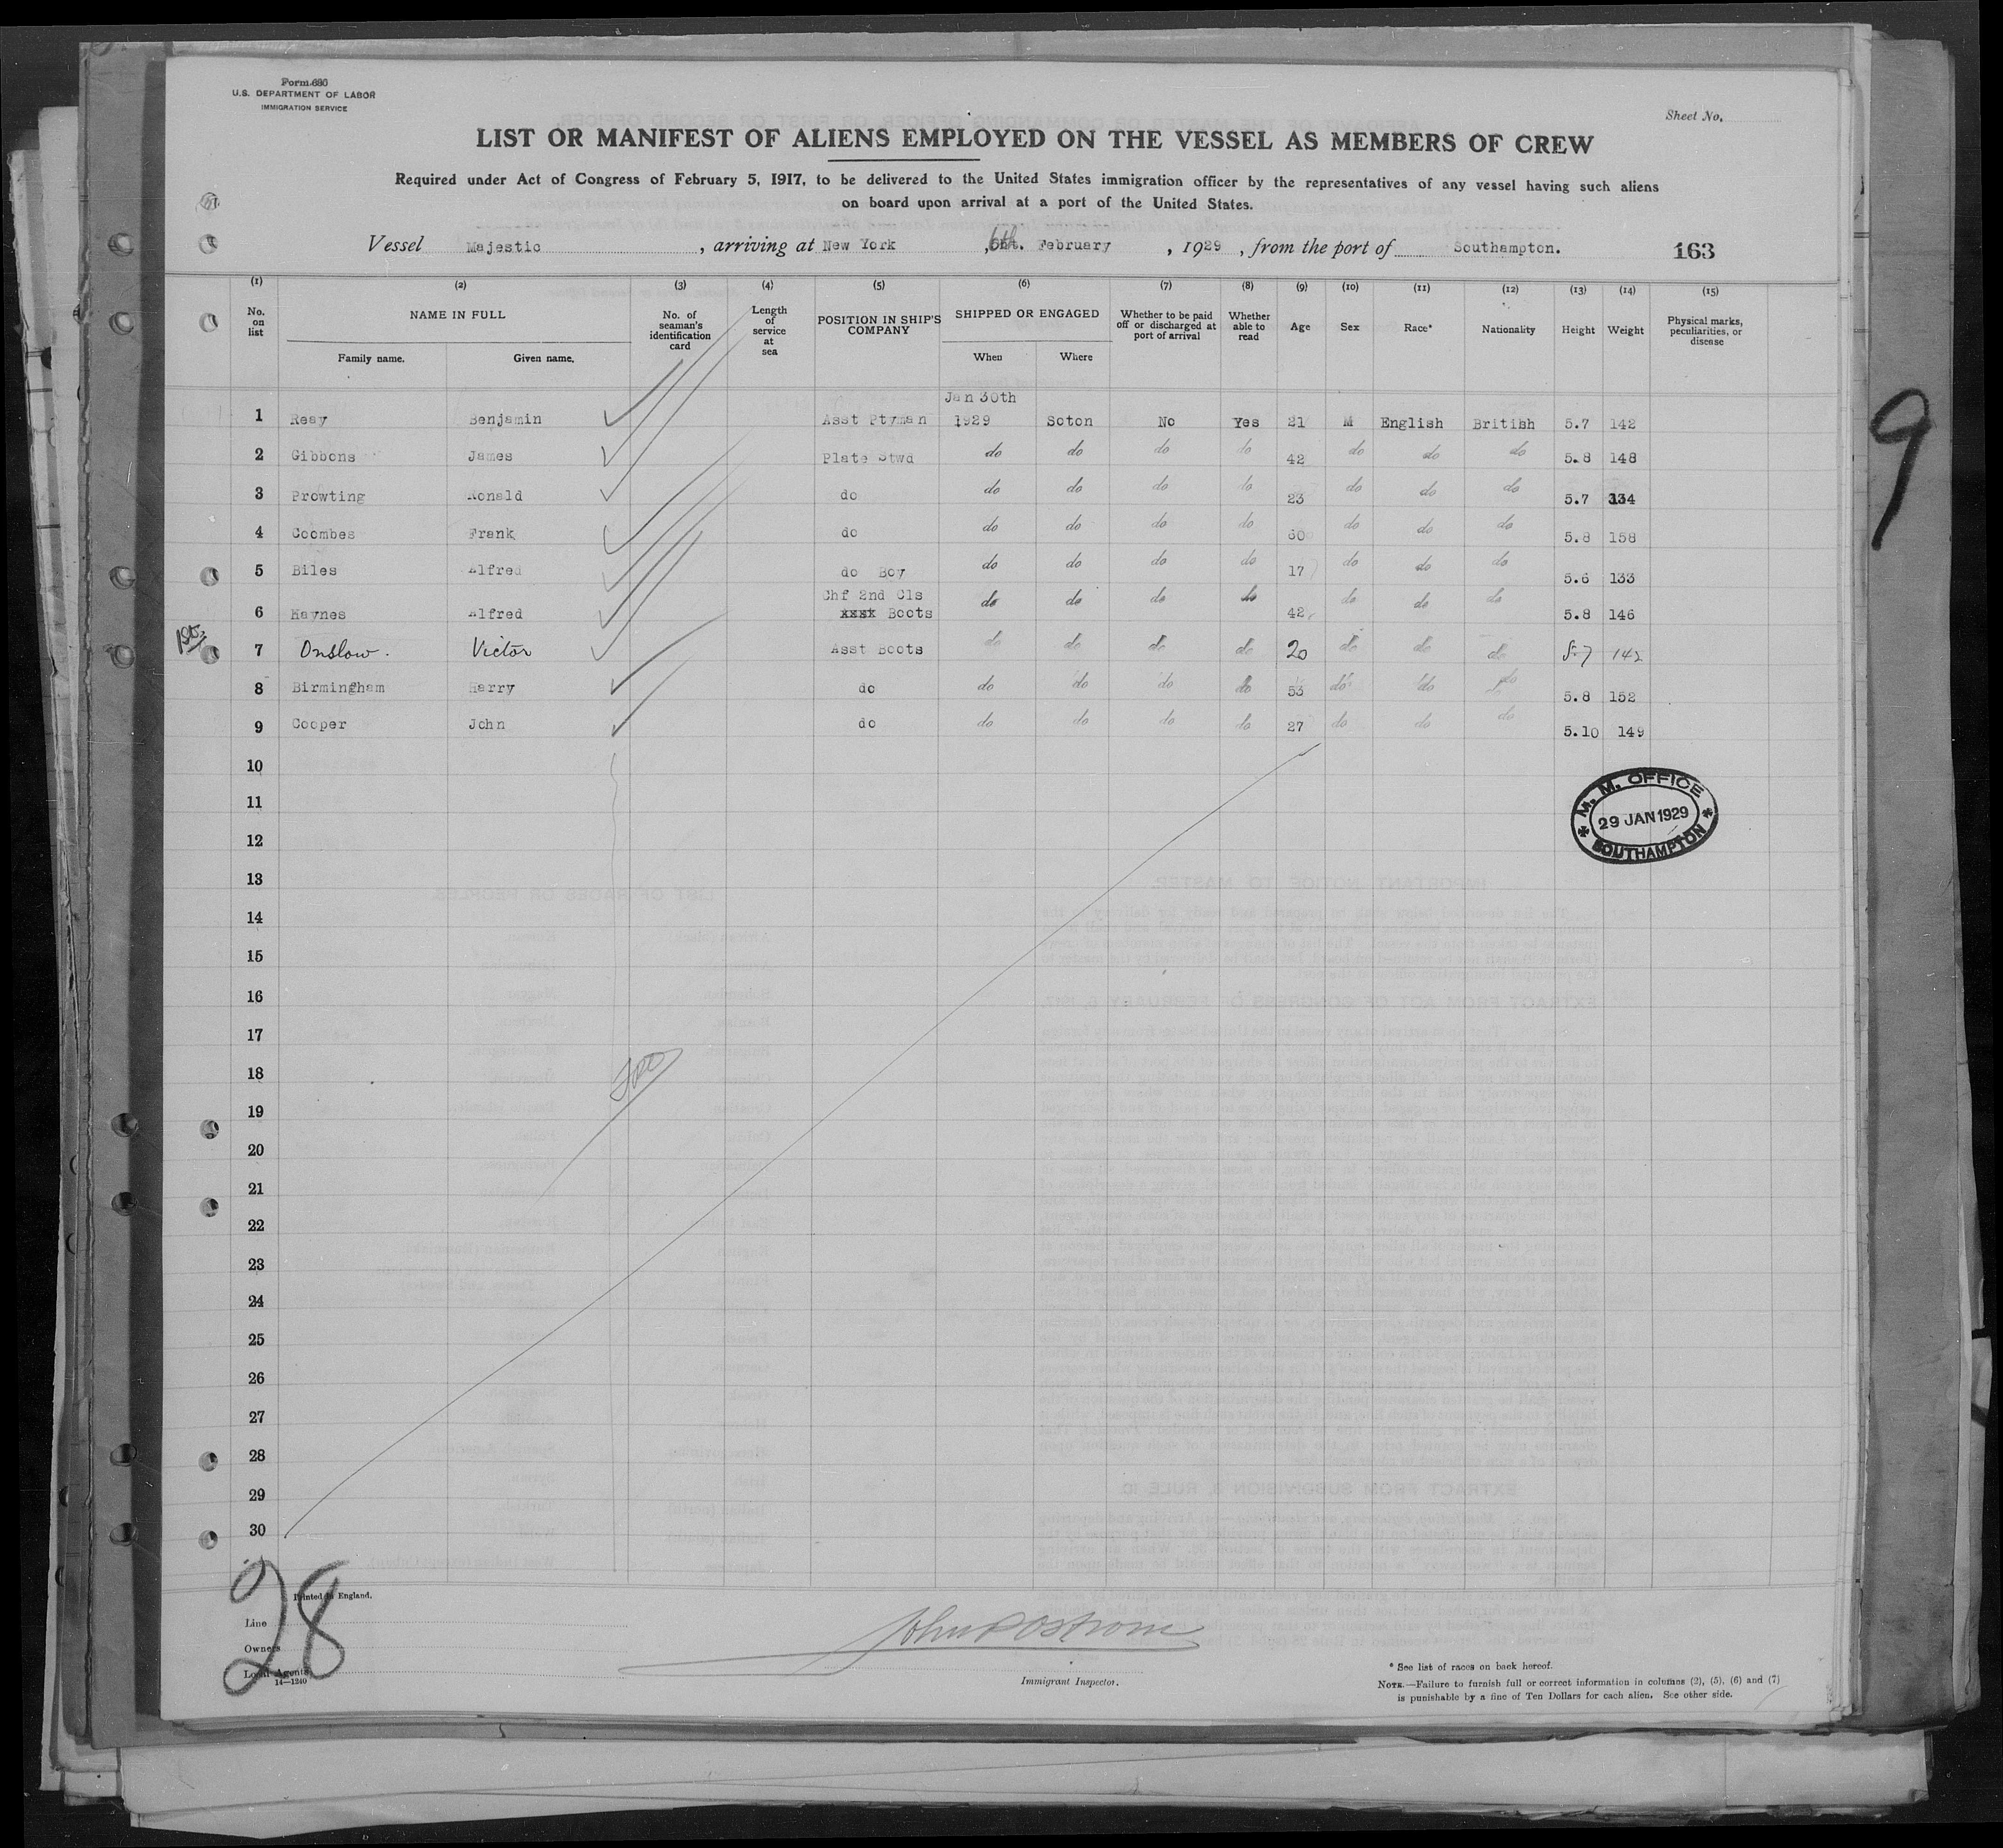 Form 686
U.S. DEPARTMENT OF LABOR
IMMIGRATION SERVICE
Sheet No.
LIST OR MANIFEST OF ALIENS EMPLOYED ON THE VESSEL AS MEMBERS OF CREW
Required under Act of Congress of February 5, 1917, to be delivered to the United States immigration officer by the representatives of any vessel having such aliens
on board upon arrival at a port of the United States.
Vessel Majestic, arriving at New York, 6th. February, 1929, from the port of Southampton. 163
(1) (2) (3) (4) (5) (6) (7) (8) (9) (10) (11) (12) (13) (14) (15)
No. on list NAME IN FULL Family name. Given name. No. of seaman's identification card Length of service at sea POSITION IN SHIP'S COMPANY SHIPPED OR ENGAGED When Where Whether to be paid off or discharged at port of arrival Whether able to read Age Sex Race* Nationality Height Weight Physical marks, peculiarities, or disease
Jan 30th
1 Reay Benjamin Asst Ptyman 1929 Soton No Yes 21 M English British 5.7 142
2 Gibbons James Plate Stwd do do do do 42 do do do 5.8 148
3 Prowting Ronald do do do do do 23 do do do 5.7 134
4 Coombes Frank do do do do do 60 do do do 5.8 158
5 Biles Alfred do Boy do do do do 17 do do do 5.6 133
Chf 2nd Cls
6 Haynes Alfred xxxx Boots do do do do 42 do do do 5.8 146
1st 7 Onslow. Victor Asst Boots do do do do 20 do do do 5-7 142
8 Birmingham Harry do do do do do 53 do do do 5.8 152
9 Cooper John do do do do do 27 do do do 5.10 149
10
11
12
13
14
15
16
17
18
19
20
21
22
23
24
25
26
27
28
29
30
M. M. OFFICE
29 JAN 1929
SOUTHAMPTON
9
28
Printed in England.
Line
Owners
Local Agents
14—1240
Immigrant Inspector.
* See list of races on back hereof.
NOTE.—Failure to furnish full or correct information in columns (2), (5), (6) and (7)
is punishable by a fine of Ten Dollars for each alien. See other side.